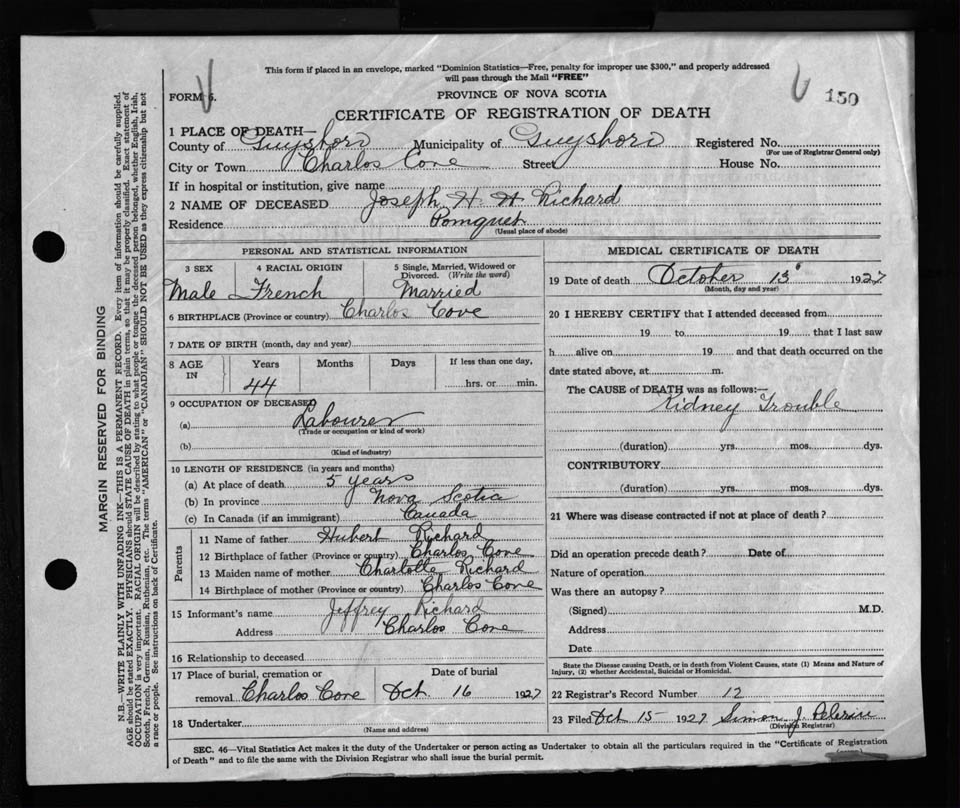 This form if placed in an envelope, marked "Dominion Statistics—Free, penalty for improper use $300," and properly addressed
will pass through the Mail "FREE"
FORM 6.
PROVINCE OF NOVA SCOTIA
150
CERTIFICATE OF REGISTRATION OF DEATH
1 PLACE OF DEATH—
County of Guysboro Municipality of Guysboro Registered No.
(For use of Registrar General only)
City or Town Charlos Cove Street House No.
If in hospital or institution, give name
2 NAME OF DECEASED Joseph H. W Richard
Residence Pomquet
(Usual place of abode)
PERSONAL AND STATISTICAL INFORMATION
3 SEX 4 RACIAL ORIGIN 5 Single, Married, Widowed or
Divorced. (Write the word)
Male French Married
6 BIRTHPLACE (Province or country) Charlos Cove
7 DATE OF BIRTH (month, day and year)
8 AGE IN Years Months Days If less than one day,
44 hrs. or min.
9 OCCUPATION OF DECEASED
(a) Labourer
(Trade or occupation or kind of work)
(b)
(Kind of industry)
10 LENGTH OF RESIDENCE (in years and months)
(a) At place of death 5 years
(b) In province Nova Scotia
(c) In Canada (if an immigrant) Canada
Parents
11 Name of father Hubert Richard
12 Birthplace of father (Province or country) Charlos Cove
13 Maiden name of mother Charlotte Richard
14 Birthplace of mother (Province or country) Charlos Cove
15 Informant's name Jeffrey Richard
Address Charlos Cove
16 Relationship to deceased
17 Place of burial, cremation or Date of burial
removal Charlos Cove Oct. 16 1927
18 Undertaker
(Name and address)
MEDICAL CERTIFICATE OF DEATH
19 Date of death October 13 1927
(Month, day and year)
20 I HEREBY CERTIFY that I attended deceased from
19 to 19 that I last saw
h alive on 19 and that death occurred on the
date stated above, at m.
The CAUSE of DEATH was as follows:—
Kidney Trouble
(duration) yrs. mos. dys.
CONTRIBUTORY
(duration) yrs. mos. dys.
21 Where was disease contracted if not at place of death?
Did an operation precede death? Date of
Nature of operation
Was there an autopsy?
(Signed) M.D.
Address
Date
State the Disease causing Death, or in death from Violent Causes, state (1) Means and Nature of
Injury, (2) whether Accidental, Suicidal or Homicidal.
22 Registrar's Record Number 12
23 Filed Oct 15 1927 Simon J. Pelerin
(Division Registrar)
SEC. 46—Vital Statistics Act makes it the duty of the Undertaker or person acting as Undertaker to obtain all the particulars required in the "Certificate of Registration
of Death" and to file the same with the Division Registrar who shall issue the burial permit.
MARGIN RESERVED FOR BINDING
N.B.—WRITE PLAINLY WITH UNFADING INK—THIS IS A PERMANENT RECORD. Every item of information should be carefully supplied.
AGE should be stated EXACTLY. PHYSICIANS should STATE CAUSE OF DEATH in plain terms, so that it may be properly classified. Exact statement of
OCCUPATION is very important. RACIAL ORIGIN will be described by stating to what people or tongue the deceased person belonged, whether English, Irish,
Scotch, French, German, Russian, Ruthenian, etc. The terms "AMERICAN" or "CANADIAN" SHOULD NOT BE USED as they express citizenship but not
a race or people. See instructions on back of Certificate.